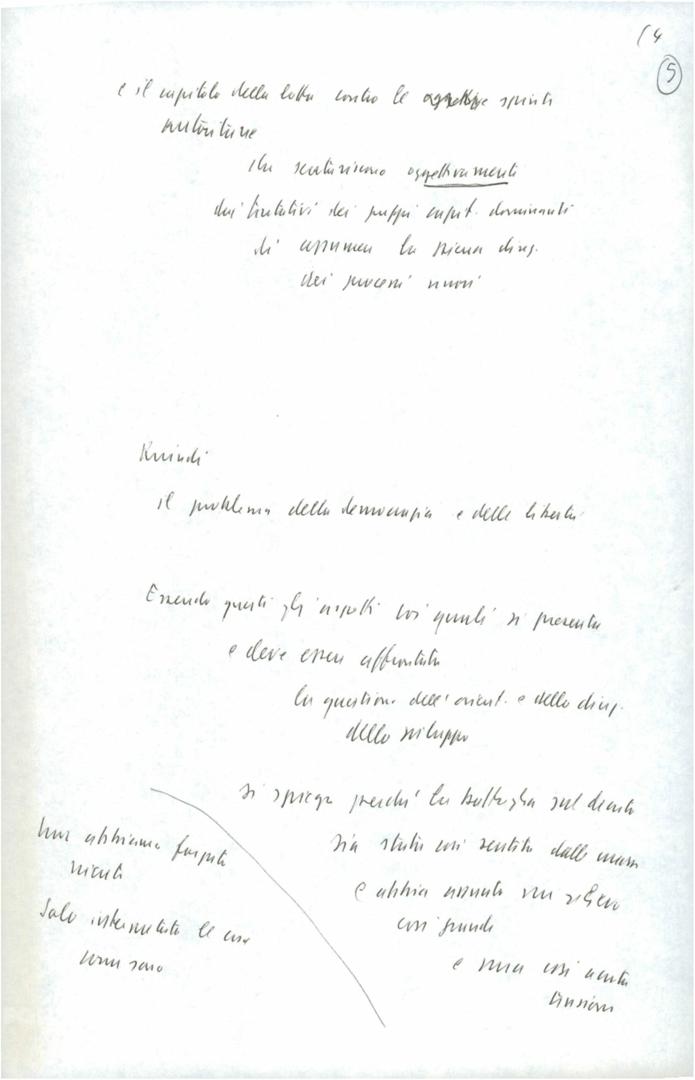 14
5
e il capitolo della lotta contro le spinte
autoritarie
che scaturiscono oggettivamente
dai tentativi dei gruppi capit. dominanti
di assumere la piena direz.
dei processi nuovi
Quindi
il problema della democrazia e delle libertà
Essendo questi gli aspetti coi quali si presenta
e deve essere affrontata
la questione dell'orient. e della direz.
dello sviluppo
si spiega perché la battaglia sul decreto
sia stata così sentita dalle masse
e abbia assunto un rilievo
così grande
e una così acuta
tensione
Non abbiamo
niente
Solo interpretato le cose
come sono